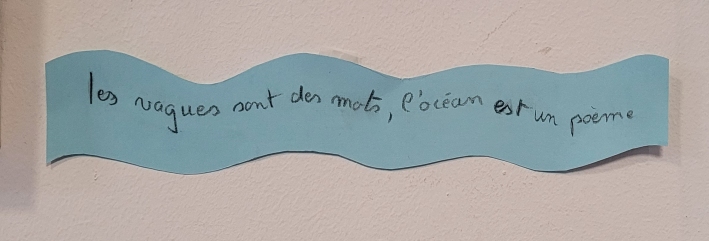 les vagues sont des mots, l'océan est un poème